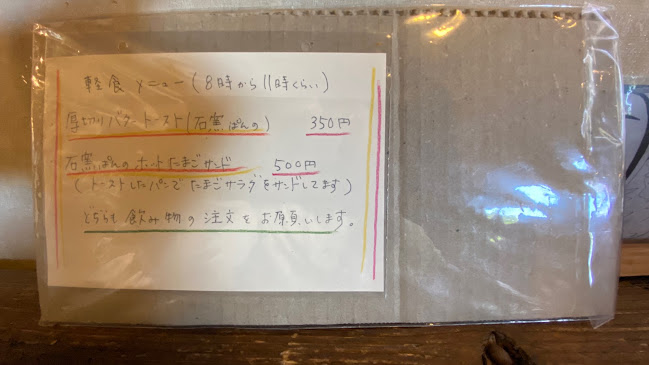 軽食メニュー(8時から11時くらい)
厚切りバタートースト(石窯ぱんの) 350円
石窯ぱんのホットたまごサンド 500円
(トーストしたパンでたまごサラダをサンドしてます)
どちらも飲み物の注文をお願いします。